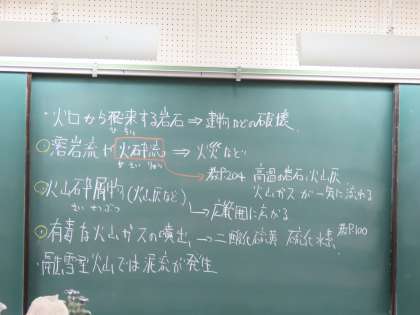 ・火口から飛来する岩石⇒建物などの破壊
ひらい
①溶岩流や火砕流⇒火災など
かさいりゅう
教P.204 高温の岩石、火山灰
火山ガスが一気に流れる
②火山砕屑物(火山灰など)
さいせつぶつ
→広範囲に広がる
③有毒な火山ガスの噴出→二酸化硫黄 硫化水素 教P.100
・融雪型火山では泥流が発生